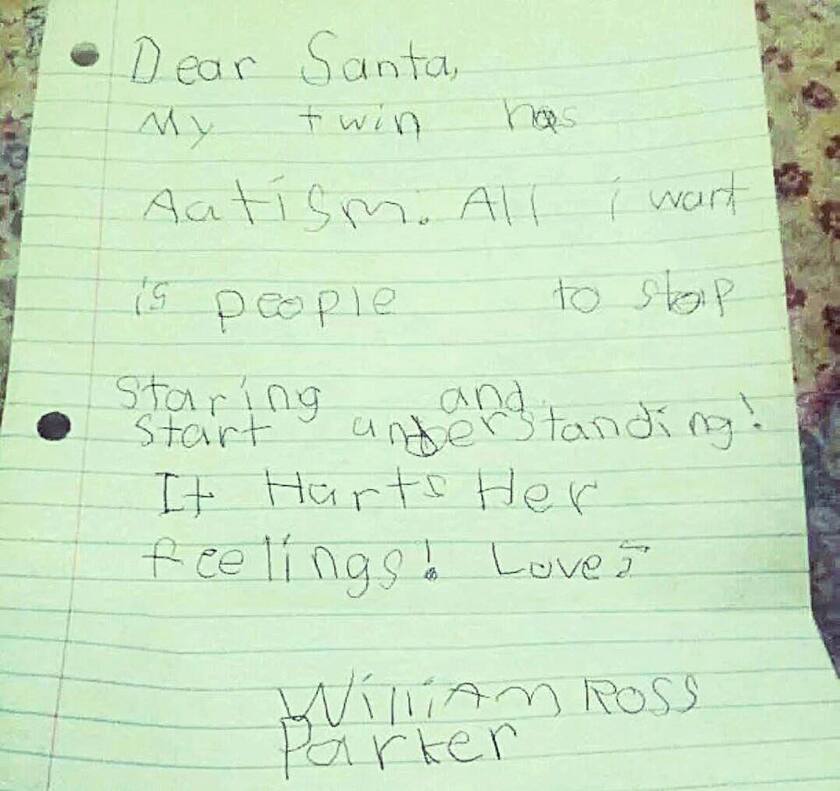 Dear Santa,
My twin has
Autism. All i want
is people to stop
staring and
start understanding!
It Hurts Her
feelings! Love,
William Ross
Parker